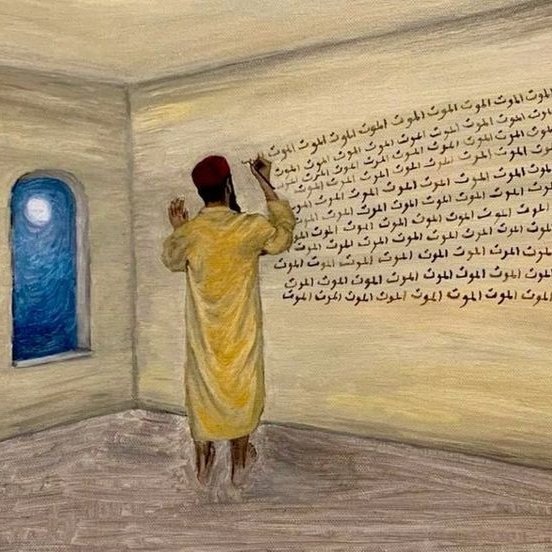 الموت الموت الموت الموت الموت الموت الموت الموت الموت
الموت الموت الموت الموت الموت الموت الموت الموت
الموت الموت الموت الموت الموت الموت الموت الموت
الموت الموت الموت الموت الموت الموت الموت الموت
الموت الموت الموت الموت الموت الموت الموت الموت
الموت الموت الموت الموت الموت الموت الموت الموت
الموت الموت الموت الموت الموت الموت الموت الموت
الموت الموت الموت الموت الموت الموت الموت الموت
الموت الموت الموت الموت الموت الموت الموت الموت
الموت الموت الموت الموت الموت الموت الموت الموت